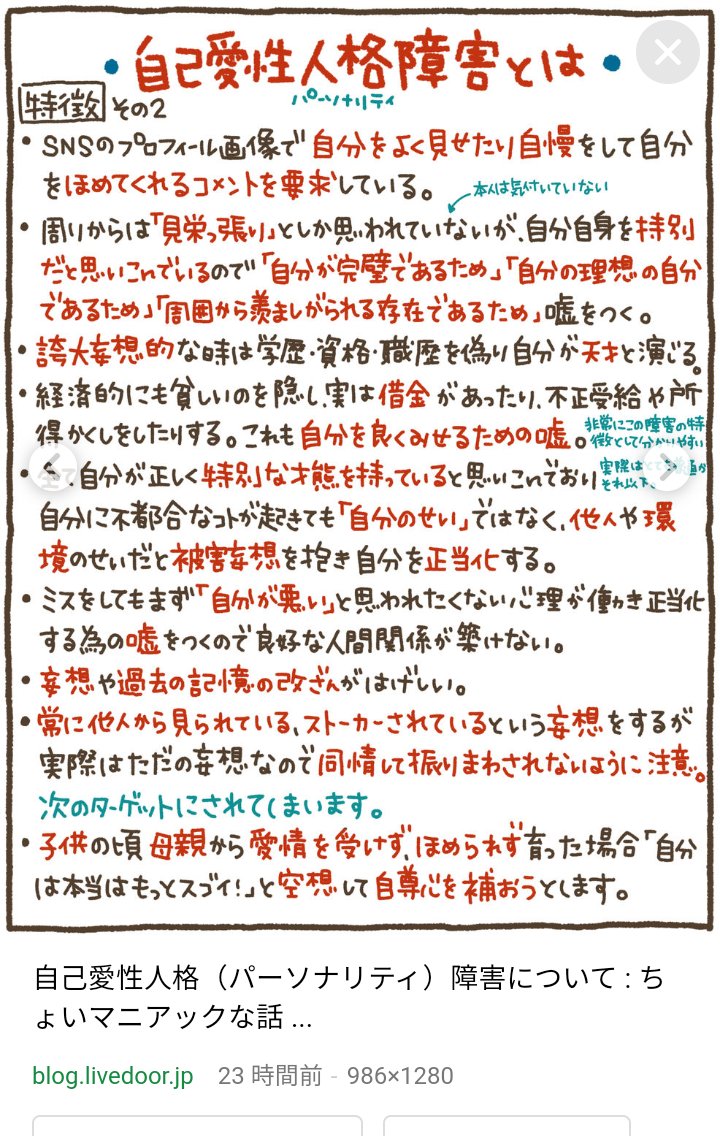 自己愛性人格障害とは
パーソナリティ
特徴 その2
・SNSのプロフィール画像で自分をよく見せたり自慢をして自分
をほめてくれるコメントを要求している。
本人は気付いていない
・周りからは「見栄っ張り」としか思われていないが、自分自身を特別
だと思いこんでいるので「自分が完璧であるため」「自分の理想の自分
であるため」「周囲から羨ましがられる存在であるため」嘘をつく。
・誇大妄想的な時は学歴・資格・職歴を偽り自分が天才と演じる。
・経済的にも貧しいのを隠し、実は借金があったり、不正受給や所
得かくしをしたりする。これも自分を良くみせるための嘘。
非常にこの障害の特
徴として分かりやすい
・自分が正しく特別な才能を持っていると思いこんでおり
実際は
それ以下。
自分に不都合なコトが起きても「自分のせい」ではなく、他人や環
境のせいだと被害妄想を抱き自分を正当化する。
・ミスをしてもまず「自分が悪い」と思われたくない心理が働き正当化
する為の嘘をつくので良好な人間関係が築けない。
・妄想や過去の記憶の改ざんがはげしい。
・常に他人から見られている、ストーカーされているという妄想をするが
実際はただの妄想なので同情して振りまわされないように注意。
次のターゲットにされてしまいます。
・子供の頃母親から愛情を受けず、ほめられず育った場合「自分
は本当はもっとスゴイ!」と空想して自尊心を補おうとします。
自己愛性人格（パーソナリティ）障害について : ち
ょいマニアックな話 ...
blog.livedoor.jp 23 時間前 - 986×1280